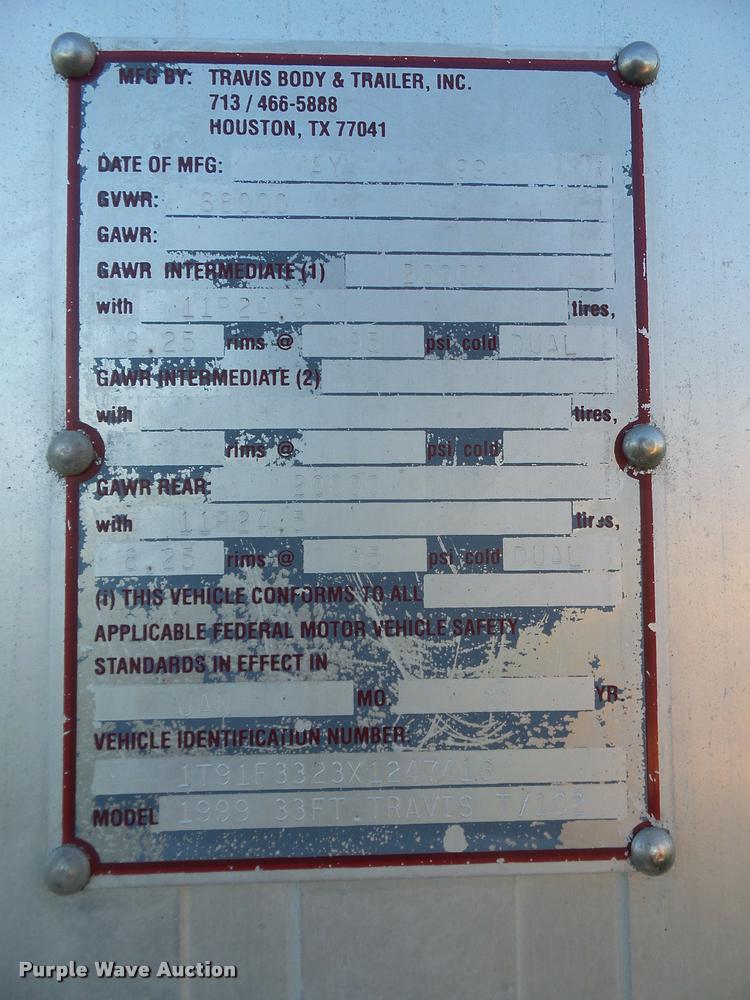 MFG BY: TRAVIS BODY & TRAILER, INC.
713 / 466-5888
HOUSTON, TX 77041
DATE OF MFG: MAY 99
GVWR: 68000
GAWR:
GAWR INTERMEDIATE (1) 20000
with 11R24.5 tires,
8.25 rims @ 95 psi cold DUAL
GAWR INTERMEDIATE (2)
with tires,
rims @ psi cold
GAWR REAR:
with 11R24.5 tires,
8.25 rims @ 95 psi cold DUAL
(i) THIS VEHICLE CONFORMS TO ALL
APPLICABLE FEDERAL MOTOR VEHICLE SAFETY
STANDARDS IN EFFECT IN
JAN MO. YR.
VEHICLE IDENTIFICATION NUMBER:
MODEL 1999 33FT.TRAVIS
Purple Wave Auction